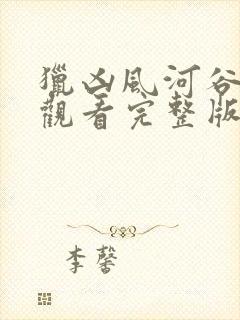 獵凶風河谷
觀看完整版
李馨